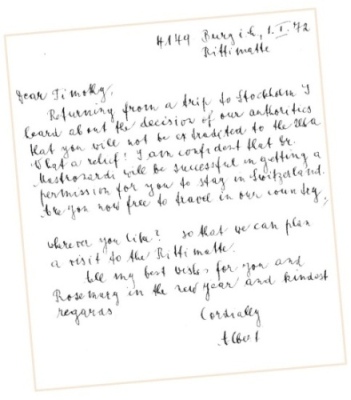 4149 Burg i.L., 1.I.72
Rittimatte
Dear Timothy,
Returning from a trip to Stockholm I
heard about the decision of our authorities
that you will not be extradited to the USA
What a relief! I am confident that Dr.
Mastronardi will be successful in getting a
permission for you to stay in Switzerland.
Are you now free to travel in our country,
wherever you like? so that we can plan
a visit to the Rittimatte.
All my best wishes for you and
Rosemary in the new year and kindest
regards
Cordially
Albert